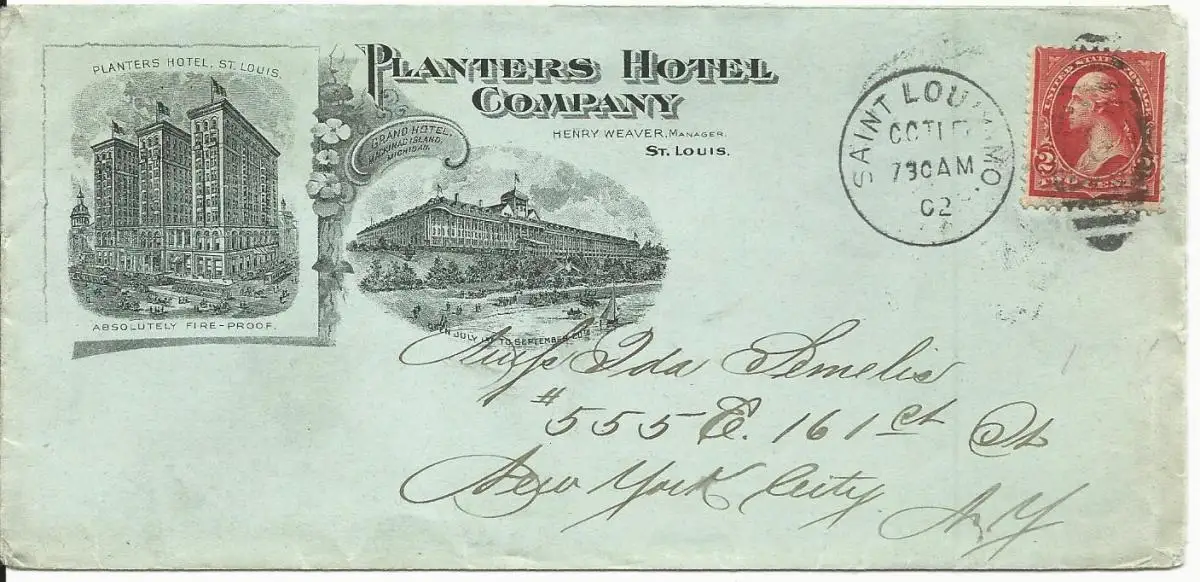 PLANTERS HOTEL, ST. LOUIS.
ABSOLUTELY FIRE-PROOF.
PLANTERS HOTEL
COMPANY
HENRY WEAVER, MANAGER.
ST. LOUIS.
GRAND HOTEL,
MACKINAC ISLAND,
MICHIGAN.
OPEN JULY 1ST TO SEPTEMBER
SAINT LOUIS, MO
730AM
02
UNITED STATES POSTAGE
2 2
TWO CENTS
Miss Ida Semelis
#555 E. 161st St
New York City.
N.Y.